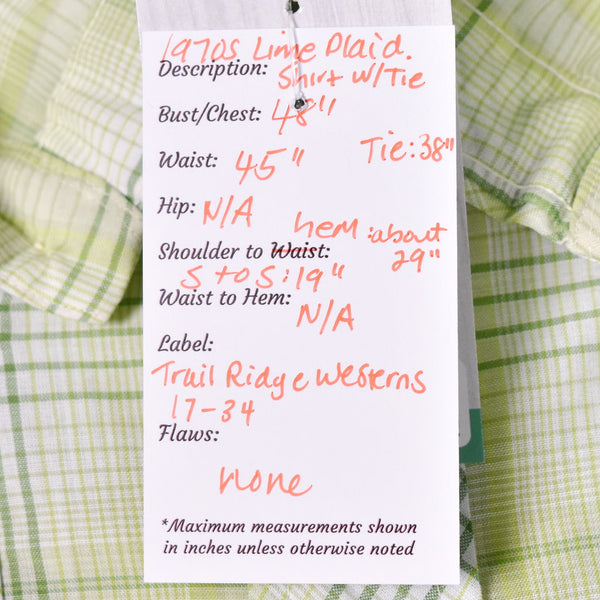 1970s Lime Plaid.
Description: Shirt W/Tie
Bust/Chest: 48"
Waist: 45" Tie: 38"
Hip: N/A
Shoulder to Waist: hem: about 29"
S to S: 19"
Waist to Hem: N/A
Label:
Trail Ridge Westerns
17-34
Flaws:
none
*Maximum measurements shown
in inches unless otherwise noted